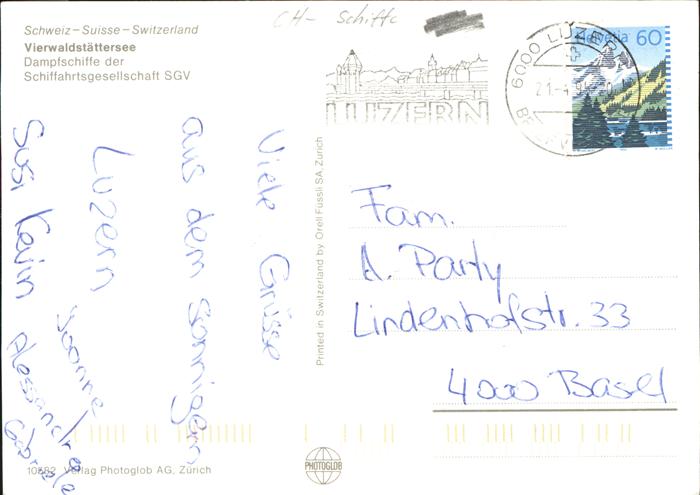 CH- Schiffe
Schweiz – Suisse – Switzerland
Vierwaldstättersee
Dampfschiffe der
Schiffahrtsgesellschaft SGV
LUZERN
6000 LUZERN
Helvetia 60
Viele Grüsse
aus dem sonnigen
Luzern
Yvonne
Susi Kevin Alessandra
Printed in Switzerland by Orell Füssli SA, Zürich
Fam.
A. Party
Lindenhofstr. 33
4000 Basel
PHOTOGLOB
10662 Verlag Photoglob AG, Zürich